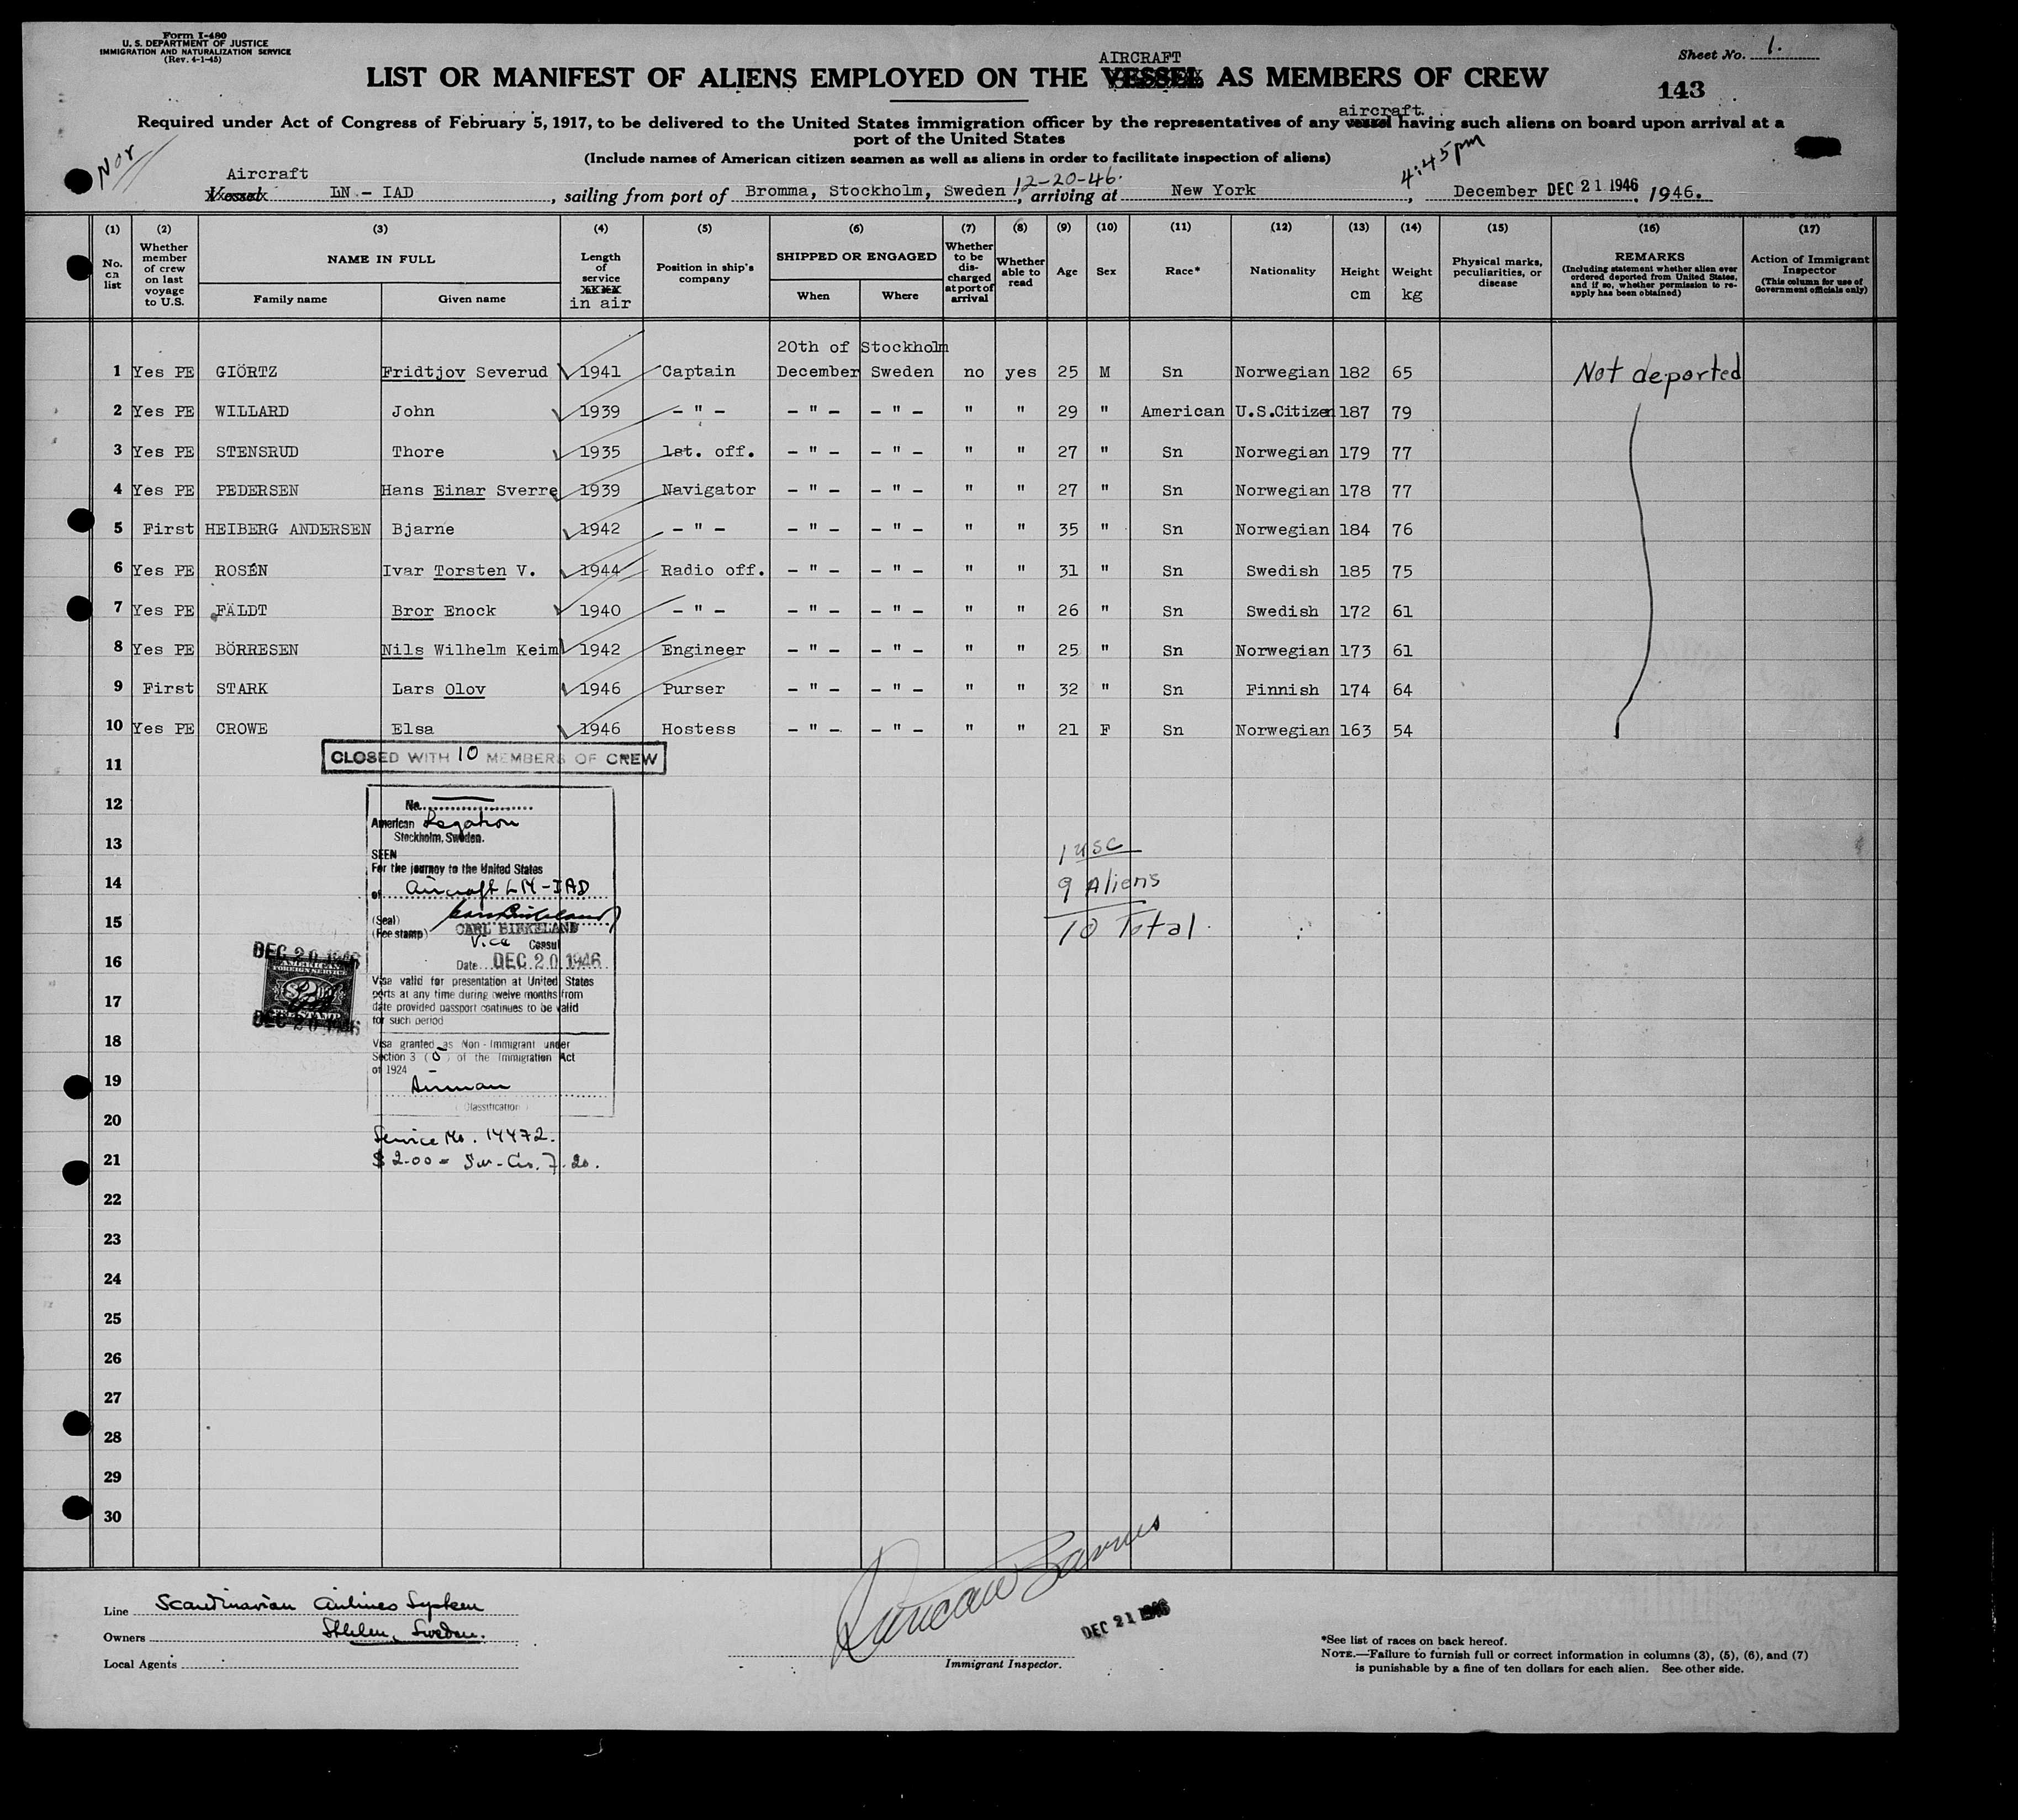 Form I-480
U. S. DEPARTMENT OF JUSTICE
IMMIGRATION AND NATURALIZATION SERVICE
(Rev. 4-1-45)
Sheet No. 1.
AIRCRAFT
LIST OR MANIFEST OF ALIENS EMPLOYED ON THE VESSEL AS MEMBERS OF CREW
143
aircraft.
Required under Act of Congress of February 5, 1917, to be delivered to the United States immigration officer by the representatives of any vessel having such aliens on board upon arrival at a
port of the United States
(Include names of American citizen seamen as well as aliens in order to facilitate inspection of aliens)
Nor
4:45 pm
Aircraft
Vessel LN - IAD, sailing from port of Bromma, Stockholm, Sweden 12-20-46., arriving at New York, December DEC 21 1946, 1946.
(1) (2) (3) (4) (5) (6) (7) (8) (9) (10) (11) (12) (13) (14) (15) (16) (17)
No. on list | Whether member of crew on last voyage to U.S. | NAME IN FULL Family name Given name | Length of service in air | Position in ship's company | SHIPPED OR ENGAGED When Where | Whether to be discharged at port of arrival | Whether able to read | Age | Sex | Race* | Nationality | Height cm | Weight kg | Physical marks, peculiarities, or disease | REMARKS (Including statement whether alien ever ordered deported from United States, and if so, whether permission to re-apply has been obtained) | Action of Immigrant Inspector (This column for use of Government officials only)
20th of Stockholm
1 Yes PE GIÖRTZ Fridtjov Severud 1941 Captain December Sweden no yes 25 M Sn Norwegian 182 65 Not deported
2 Yes PE WILLARD John 1939 - " - - " - - " - " " 29 " American U.S.Citizen 187 79
3 Yes PE STENSRUD Thore 1935 1st. off. - " - - " - " " 27 " Sn Norwegian 179 77
4 Yes PE PEDERSEN Hans Einar Sverre 1939 Navigator - " - - " - " " 27 " Sn Norwegian 178 77
5 First HEIBERG ANDERSEN Bjarne 1942 - " - - " - - " - " " 35 " Sn Norwegian 184 76
6 Yes PE ROSÉN Ivar Torsten V. 1944 Radio off. - " - - " - " " 31 " Sn Swedish 185 75
7 Yes PE FÄLDT Bror Enock 1940 - " - - " - - " - " " 26 " Sn Swedish 172 61
8 Yes PE BÖRRESEN Nils Wilhelm Keim 1942 Engineer - " - - " - " " 25 " Sn Norwegian 173 61
9 First STARK Lars Olov 1946 Purser - " - - " - " " 32 " Sn Finnish 174 64
10 Yes PE CROWE Elsa 1946 Hostess - " - - " - " " 21 F Sn Norwegian 163 54
CLOSED WITH 10 MEMBERS OF CREW
11
12
13
14
15
16
17
18
19
20
21
22
23
24
25
26
27
28
29
30
No.
American Legation
Stockholm, Sweden.
SEEN
For the journey to the United States
of Aircraft LN-IAD
(Seal)
(Fee stamp) CARL BIRKELAND
Vice Consul
Date DEC 20 1946
Visa valid for presentation at United States
ports at any time during twelve months from
date provided passport continues to be valid
for such period
Visa granted as Non-Immigrant under
Section 3 (5) of the Immigration Act
of 1924
Airman
(Classification)
Service No. 14472.
$2.00 = Sw. Crs. 7.20.
DEC 20 1946
AMERICAN
FOREIGN SERVICE
$2
FEE STAMP
DEC 20 1946
1 USC
9 Aliens
10 Total
Line Scandinavian Airlines System
Owners Sthlm, Sweden.
Local Agents
Duncan Barnes
DEC 21 1946
Immigrant Inspector.
*See list of races on back hereof.
NOTE.—Failure to furnish full or correct information in columns (3), (5), (6), and (7)
is punishable by a fine of ten dollars for each alien. See other side.